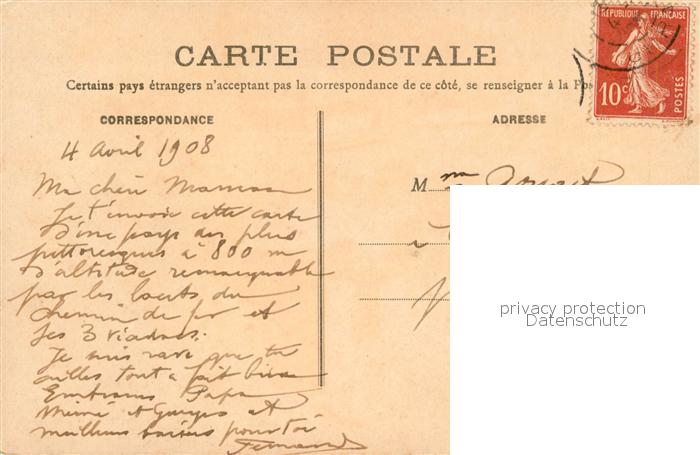 RÉPUBLIQUE FRANÇAISE
10c
POSTES
CARTE POSTALE
Certains pays étrangers n'acceptant pas la correspondance de ce côté, se renseigner à la Pos
CORRESPONDANCE
4 Avril 1908
Ma chère Maman
Je t'envoie cette carte
d'une pays des plus
pittoresques à 800 m
d'altitude remarquable
par les lacets du
chemin de fer et
ses 3 viaducs.
Je suis ravi que tu
ailles tout à fait bien
Embrasse Papa
Mémé et Georges et
meilleurs baisers pour toi
Fernand
ADRESSE
Mme
à
privacy protection
Datenschutz